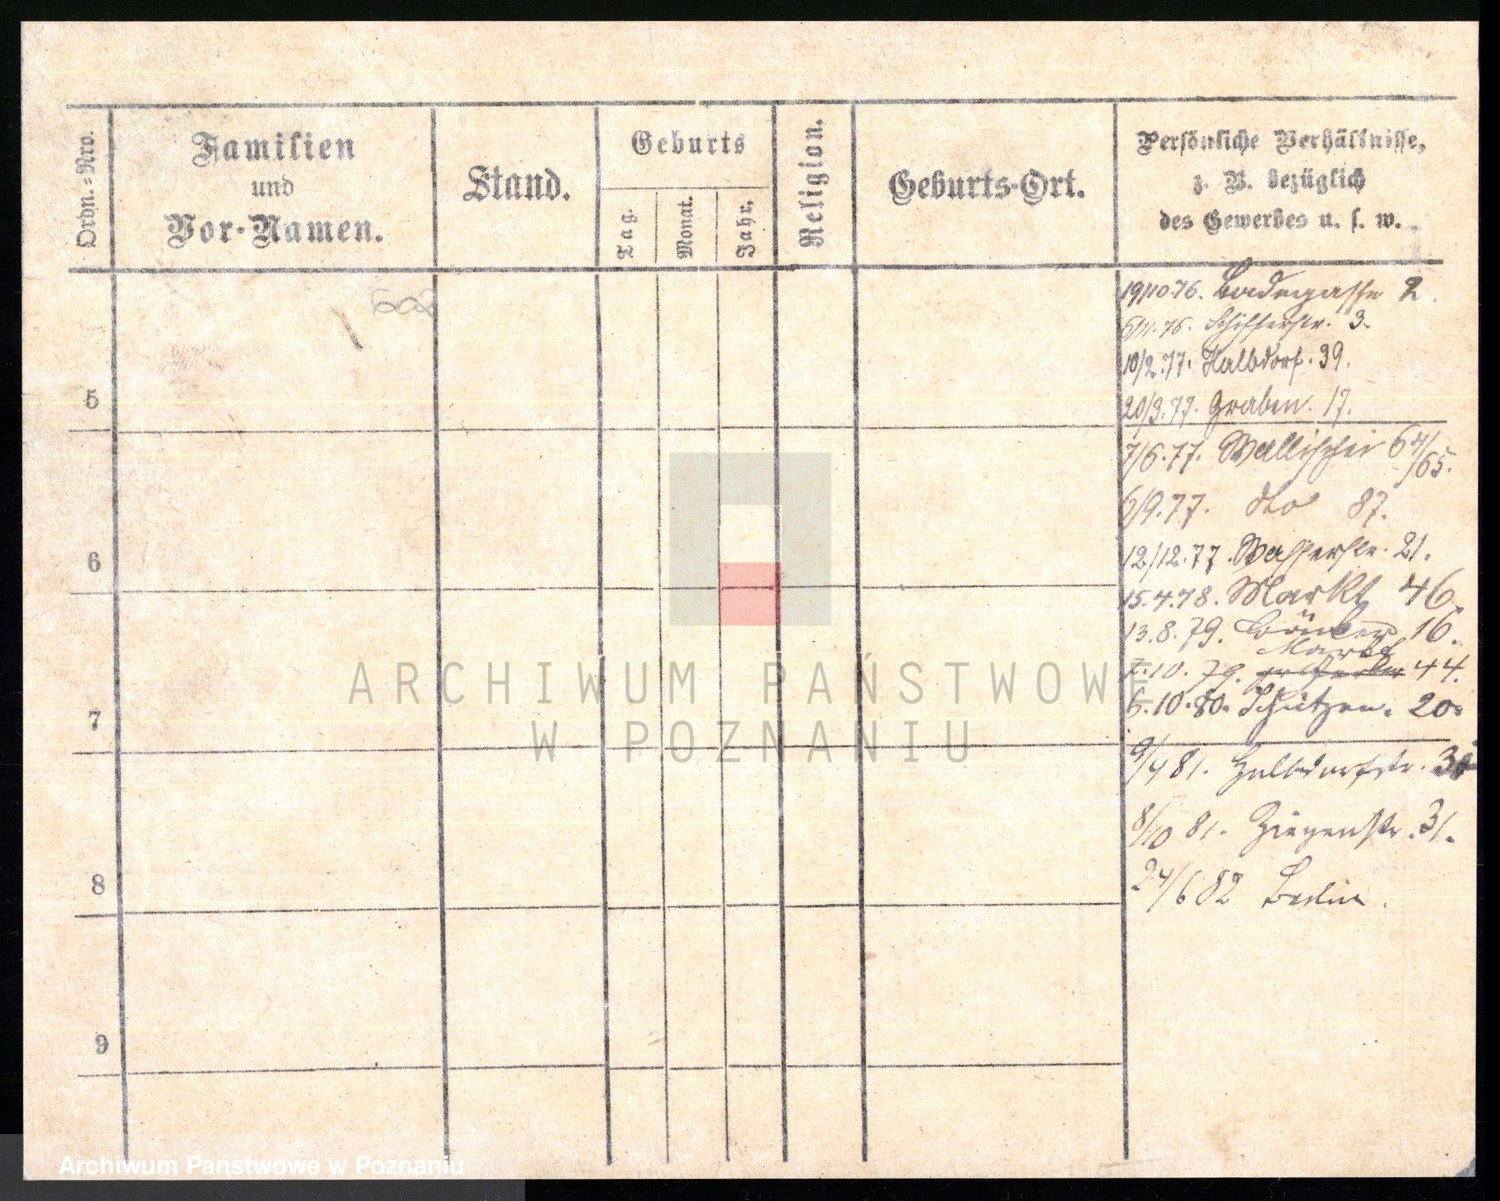 Ordn.=Nro.
Familien
und
Vor-Namen.
Stand.
Geburts
Tag.
Monat.
Jahr.
Religion.
Geburts-Ort.
Persönliche Verhältnisse,
z. B. bezüglich
des Gewerbes u. s. w.
19/10 76. Badegasse 2.
6/11. 76. Schifferstr. 3.
10/2. 77. Halbdorf. 39.
5
20/3. 77. Graben. 17.
7/6. 77. Wallischei 64/65.
6/9. 77. dto 87.
6
12/12. 77. Wasserstr. 21.
15. 4. 78. Markt 46.
13. 8. 79. 16.
Markt
7. 10. 79. 44.
ARCHIWUM PAŃSTWOWE
7
5. 10. 80. Schützen. 20.
W POZNANIU
9/4 81. Halbdorfstr.
8/10 81. Ziegenstr. 31.
8
24/6 82 Berlin.
9
Archiwum Państwowe w Poznaniu